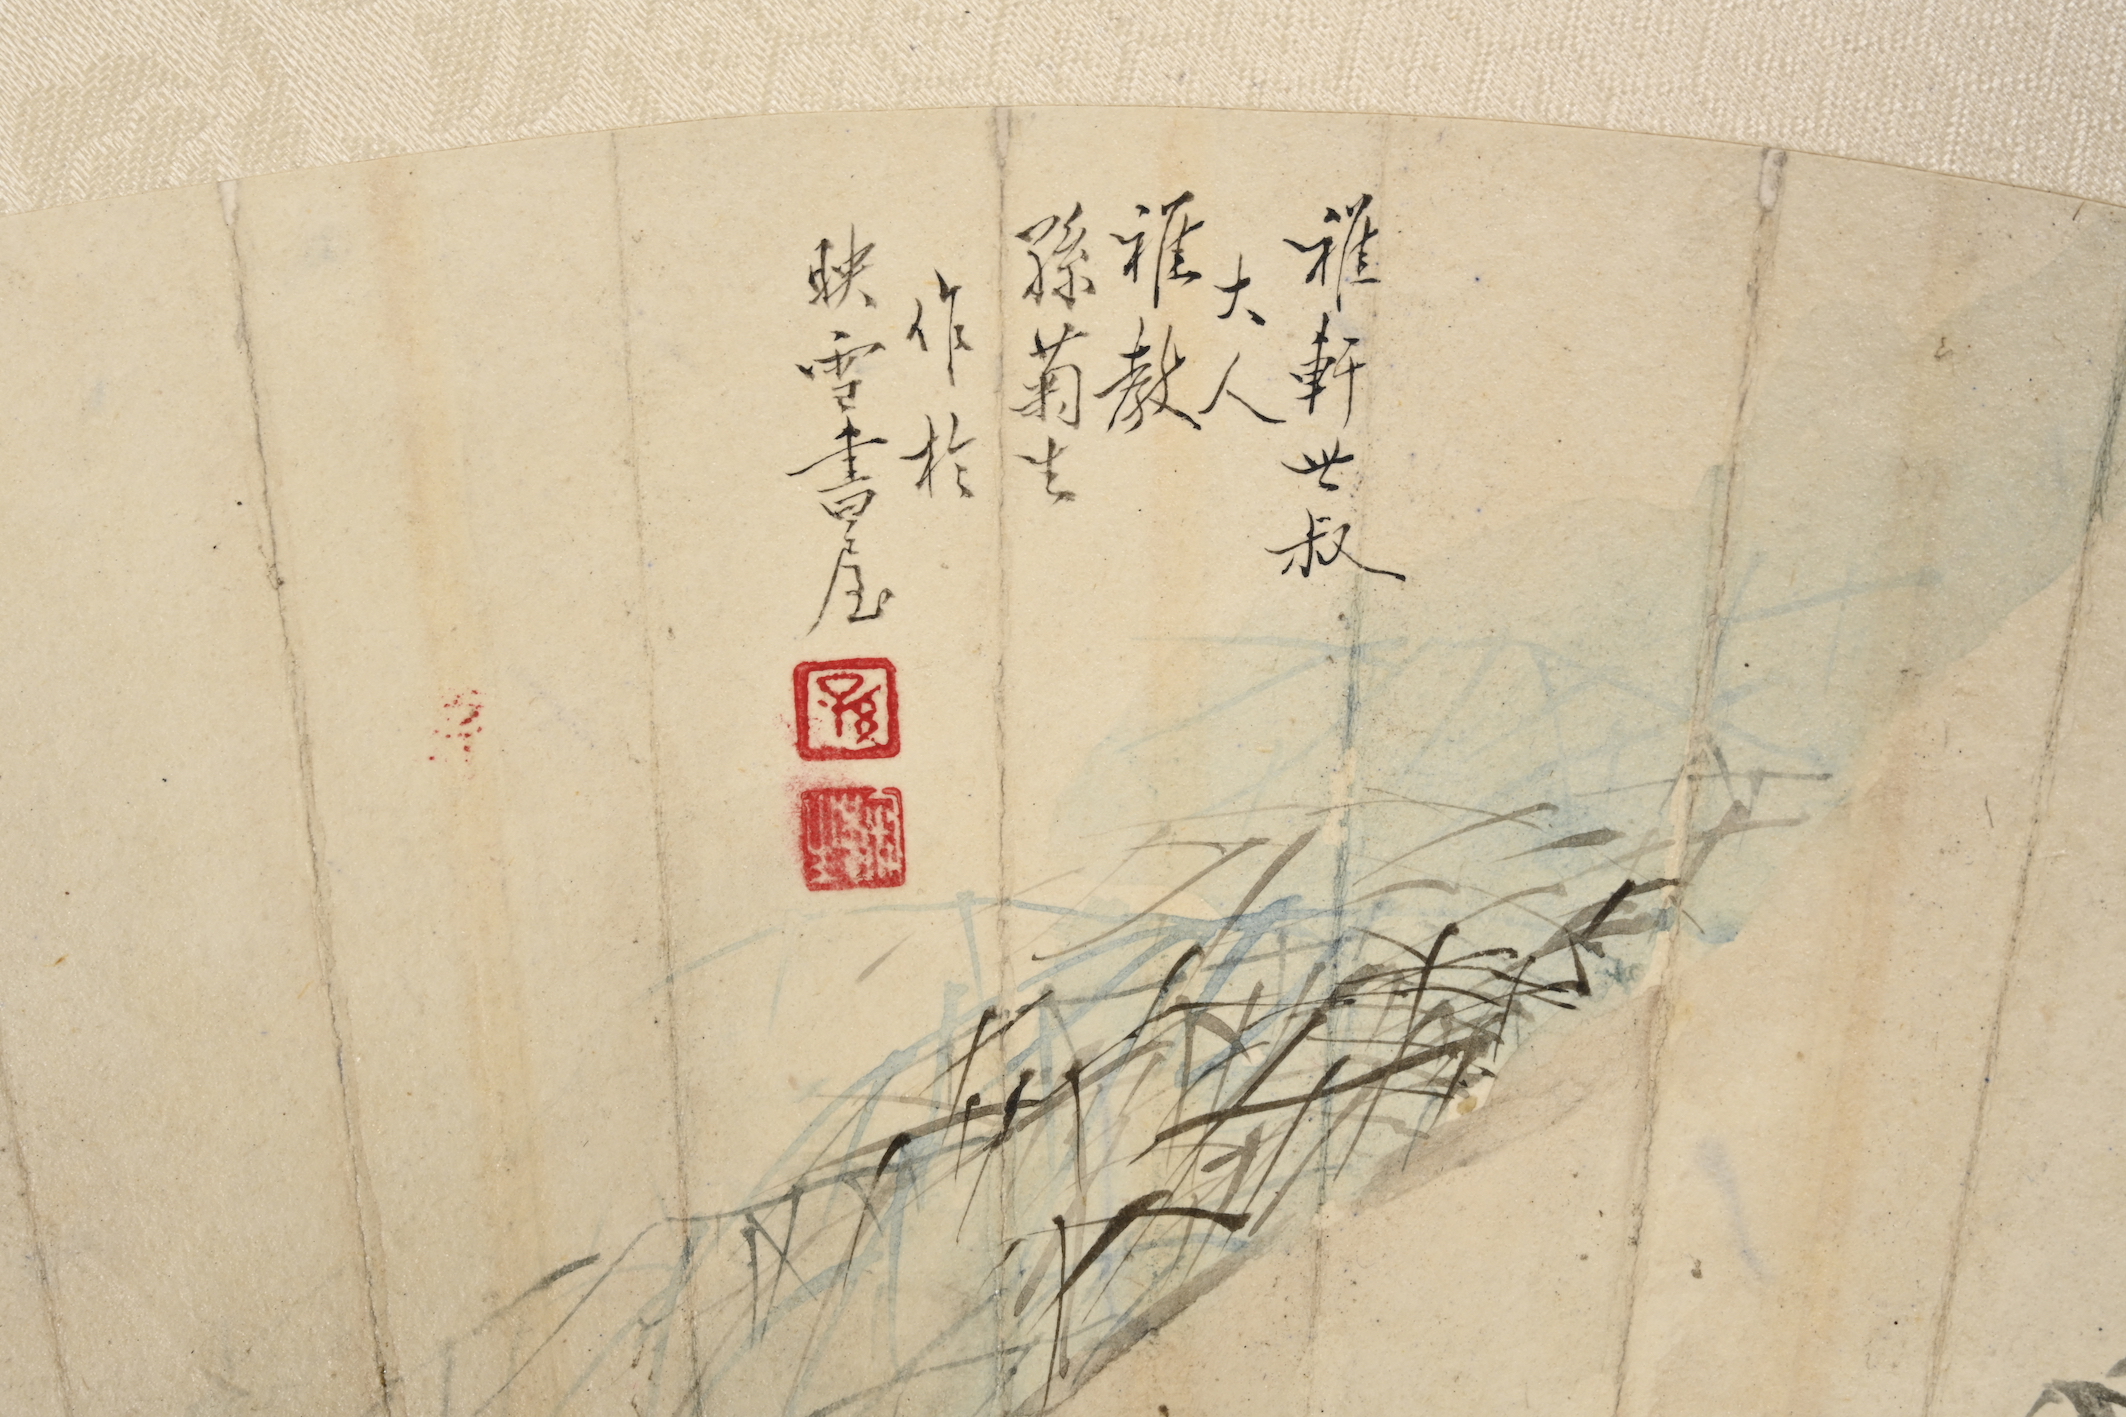 雅軒世叔
大人
雅教
孫菊生
作於
映雪書屋
孫